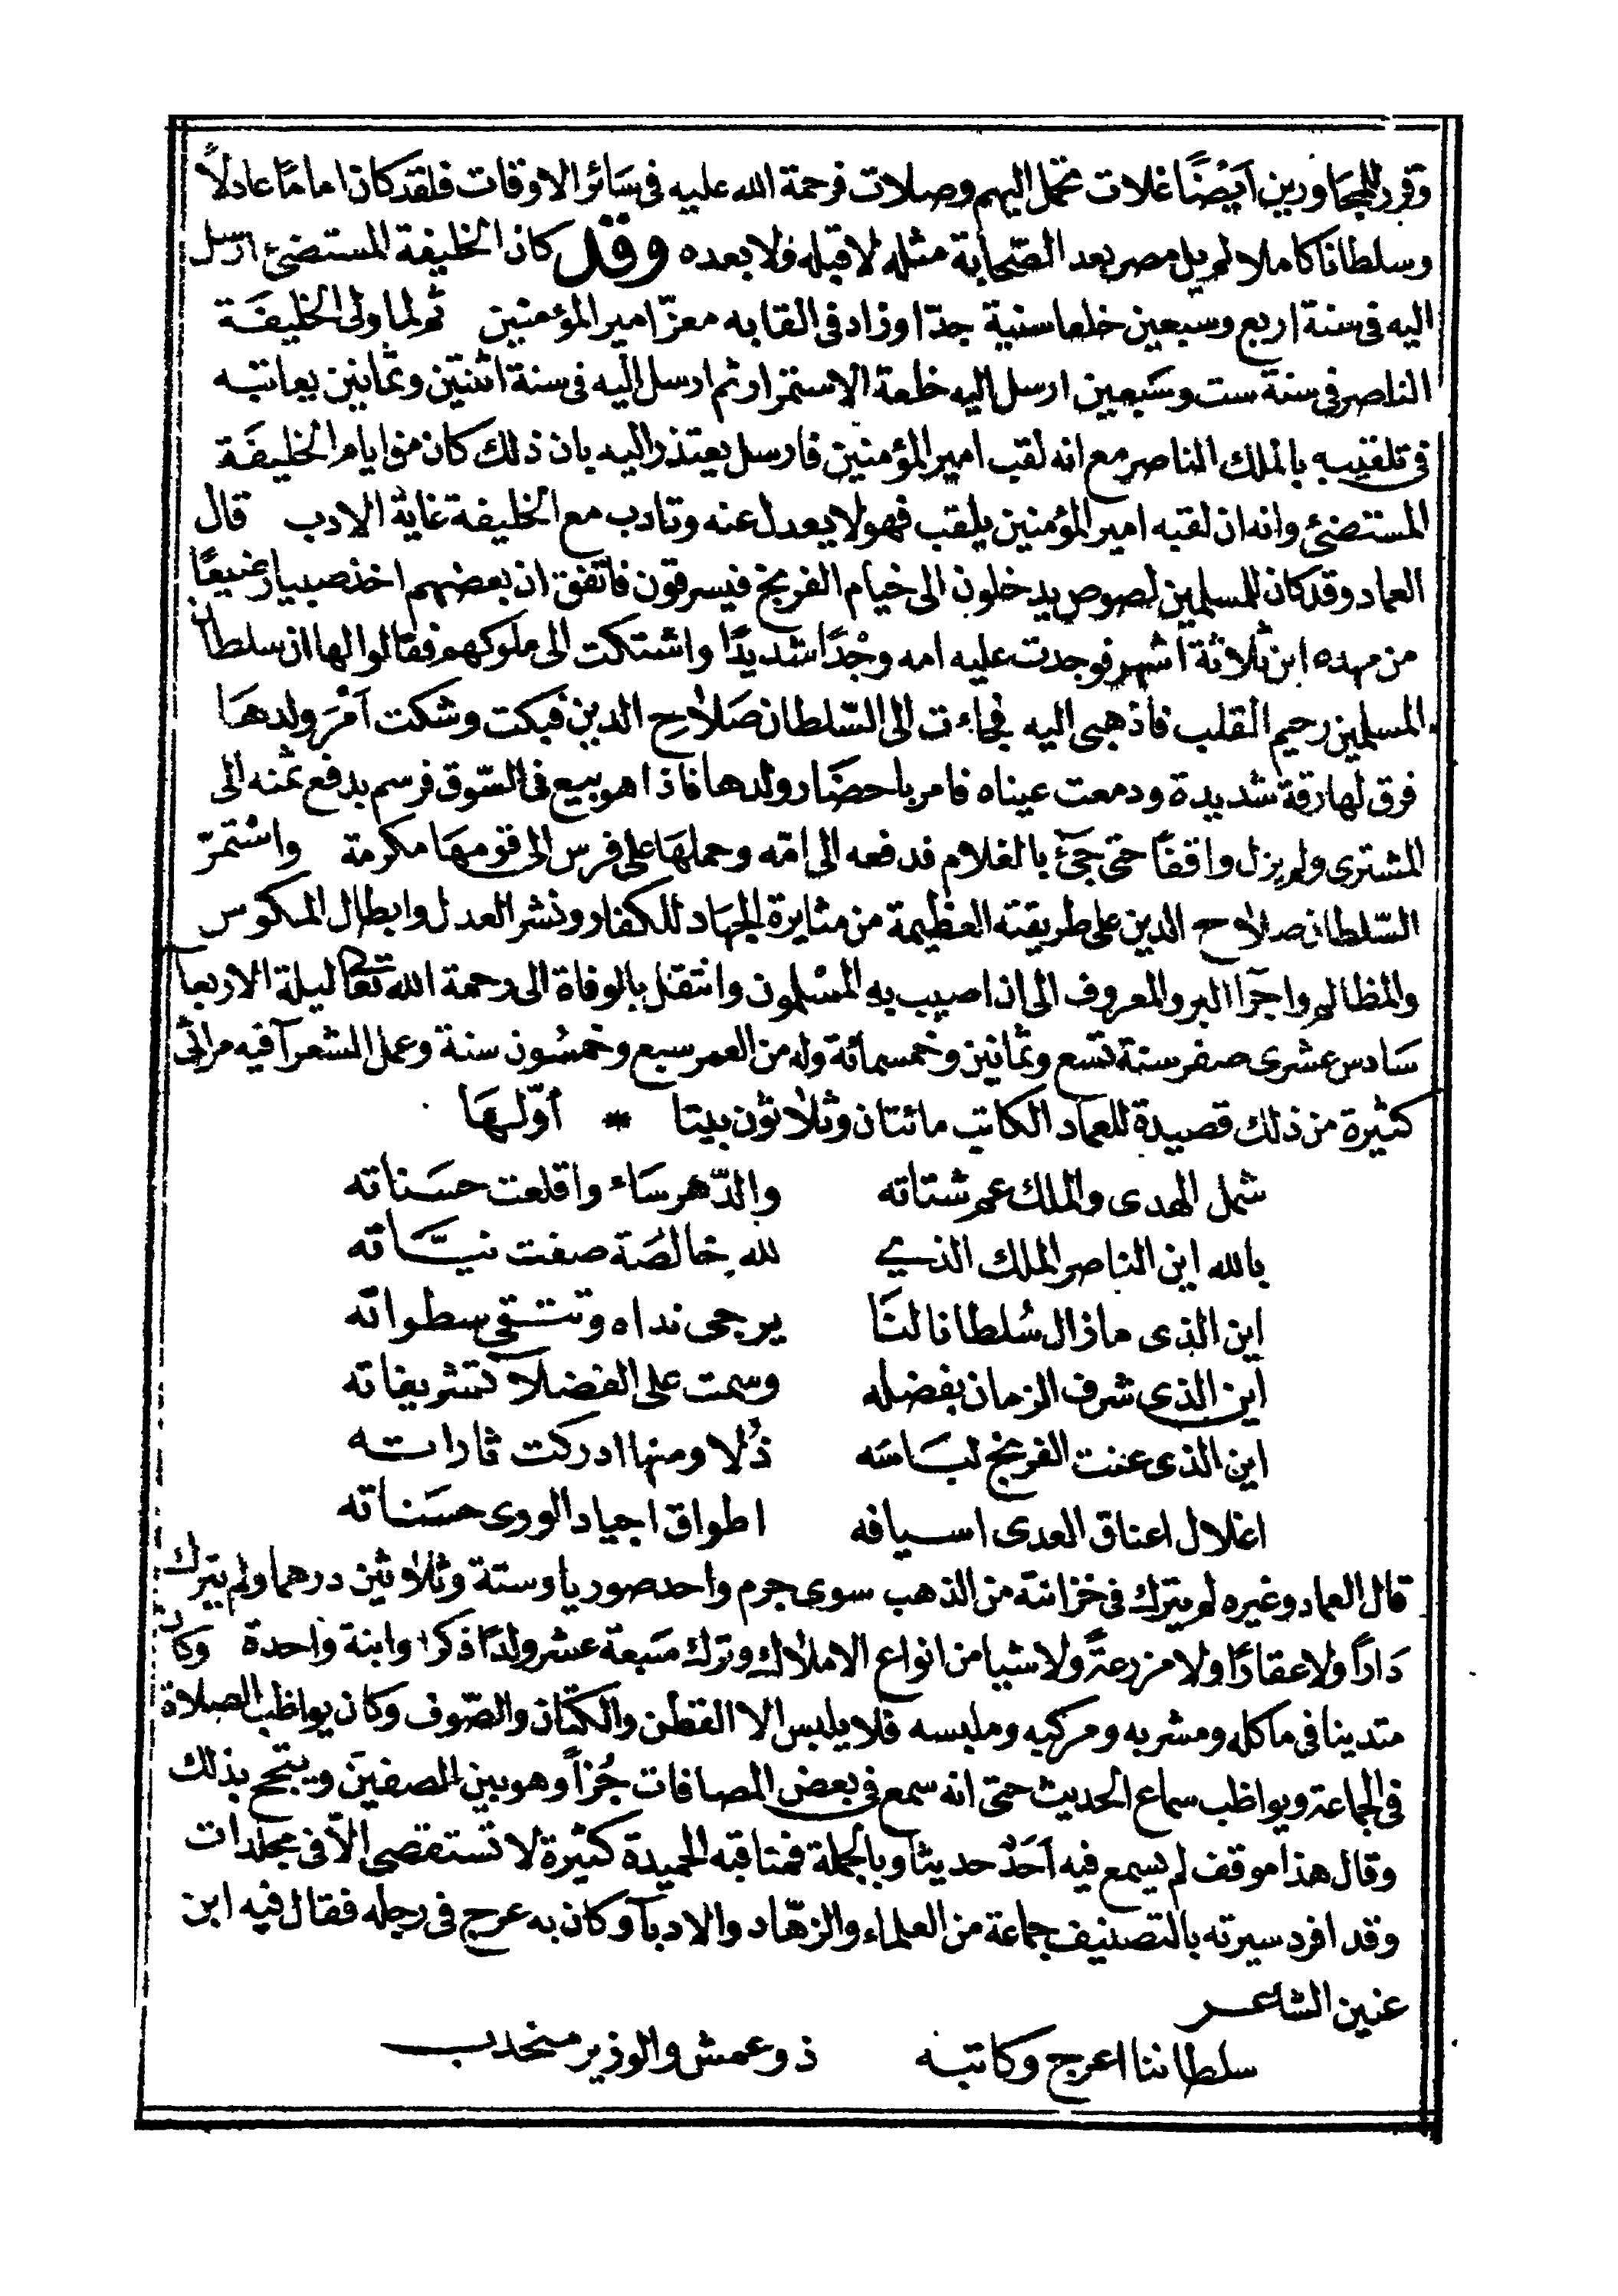 وقرر للمجاورين أيضًا غلات تحمل اليهم وصلات فرحمة الله عليه فى سَائر الاوقات فلقد كان اماما عادلاً
وسلطانا كاملا لم يل مصر بعد الصّحابة مثله لا قبله ولا بعده وقد كان الخليفة المستضئ ارسل
اليه فى سنة اربع وسبعين خلعا سنية جدّا وزاد فى القابه معزّ امير المؤمنين ثم لما ولى الخليفَة
الناصر فى سنة ست وسَبعين ارسل اليه خلعة الاستمرار ثم ارسل اليه فى سنة اثنتين وثمانين يعاتبه
فى تلقيبه بالملك الناصر مع انه لقب امير المؤمنين فارسل يعتذر اليه بان ذلك كان من ايام الخليفَة
المستضئ وانه ان لقبه امير المؤمنين بلقب فهو لا يعدل عنه وتادب مع الخليفة غاية الادب قال
العماد وقد كان للمسلمين لصوص يدخلون الى خيام الفرنج فيسرقون فاتفق ان بعضهم اخذ صبيا رضيعًا
من مهده ابن ثلاثة اشهر فوجدت عليه امه وجْدًا شديدًا واشتكت الى ملوكهم فقالوا لها ان سلطان
المسلمين رحيم القلب فاذهبى اليه فجاءت الى السّلطان صَلاح الدين فبكت وشكت اَمْرَ ولدهَا
فرق لها رقة شديدة ودمعت عيناه فامر باحضَار ولدها فاذا هو بيع فى السّوق فرسم بدفع ثمنه الى
المشترى ولم يزل واقفًا حتى جئَ بالغلام فدفعه الى امّه وحملهَا على فرس الى قومهَا مكرمة واسْتمرّ
السّلطان صلاح الدين على طريقته العظيمة من مثابرة الجهَاد للكفار ونشر العدل وابطال المكوس
والمظالم واجرآ البر والمعروف الى ان اصيب به المسْلمون وانتقل بالوفاة الى رحمة الله تعالى ليلة الاربعا
سَادس عشرى صفر سنة تسع وثمانين وخمسمائة وله من العمر سبع وخمسُون سنة وعمل الشعرآ فيه مراثى
كثيرة من ذلك قصيدة للعماد الكاتب مائتان وثلاثون بيتا * أوّلهَا
شمل الهدى والملك عم شتاته والدّهر سَاء واقلعت حسَناته
بالله اين الناصر الملك الذي لله خالصَة صفت نيَّاته
اين الذى مازال سُلطانا لنَا يرجى نداه وتتقى سطواته
اين الذى شرف الزمان بفضله وسمت على الفضلآ تشريفاته
اين الذى عنت الفرنج لبَاسَه ذُلا ومنها ادركت ثاراته
اغلال اعناق العدى اسيافه اطواق اجياد الورى حسَناته
قال العماد وغيره لم يترك فى خزانته من الذهب سوى جرم واحد صوريا وستة وثلاثين درهما ولم يترك
دَاراً ولا عقارًا ولا مزرعةً ولا شيا من انواع الاملاك وترك سَبعة عشر ولدًا ذكرا وابنة واحدة وكان
متدينا فى ماكله ومشربه ومركبه وملبسه فلا يلبس الا القطن والكتان والصّوف وكان يواظب الصلاة
فى الجماعة ويواظب سماع الحديث حتى انه سمع فى بعض المصافات جُزأً وهو بين الصفين ويتبجح بذلك
وقال هذا موقف لم يسمع فيه اَحَدٌ حديثا وبالجملة فمناقبه الحميدة كثيرة لا تستقصى الاّ فى مجلدات
وقد افرد سيرته بالتصنيف جماعة من العلماء والزهّاد والادبآ وكان به عرج فى رجله فقال فيه ابن
عنين الشاعر
سلطاننا اعرج وكاتبه ذو عمش والوزير منحدب